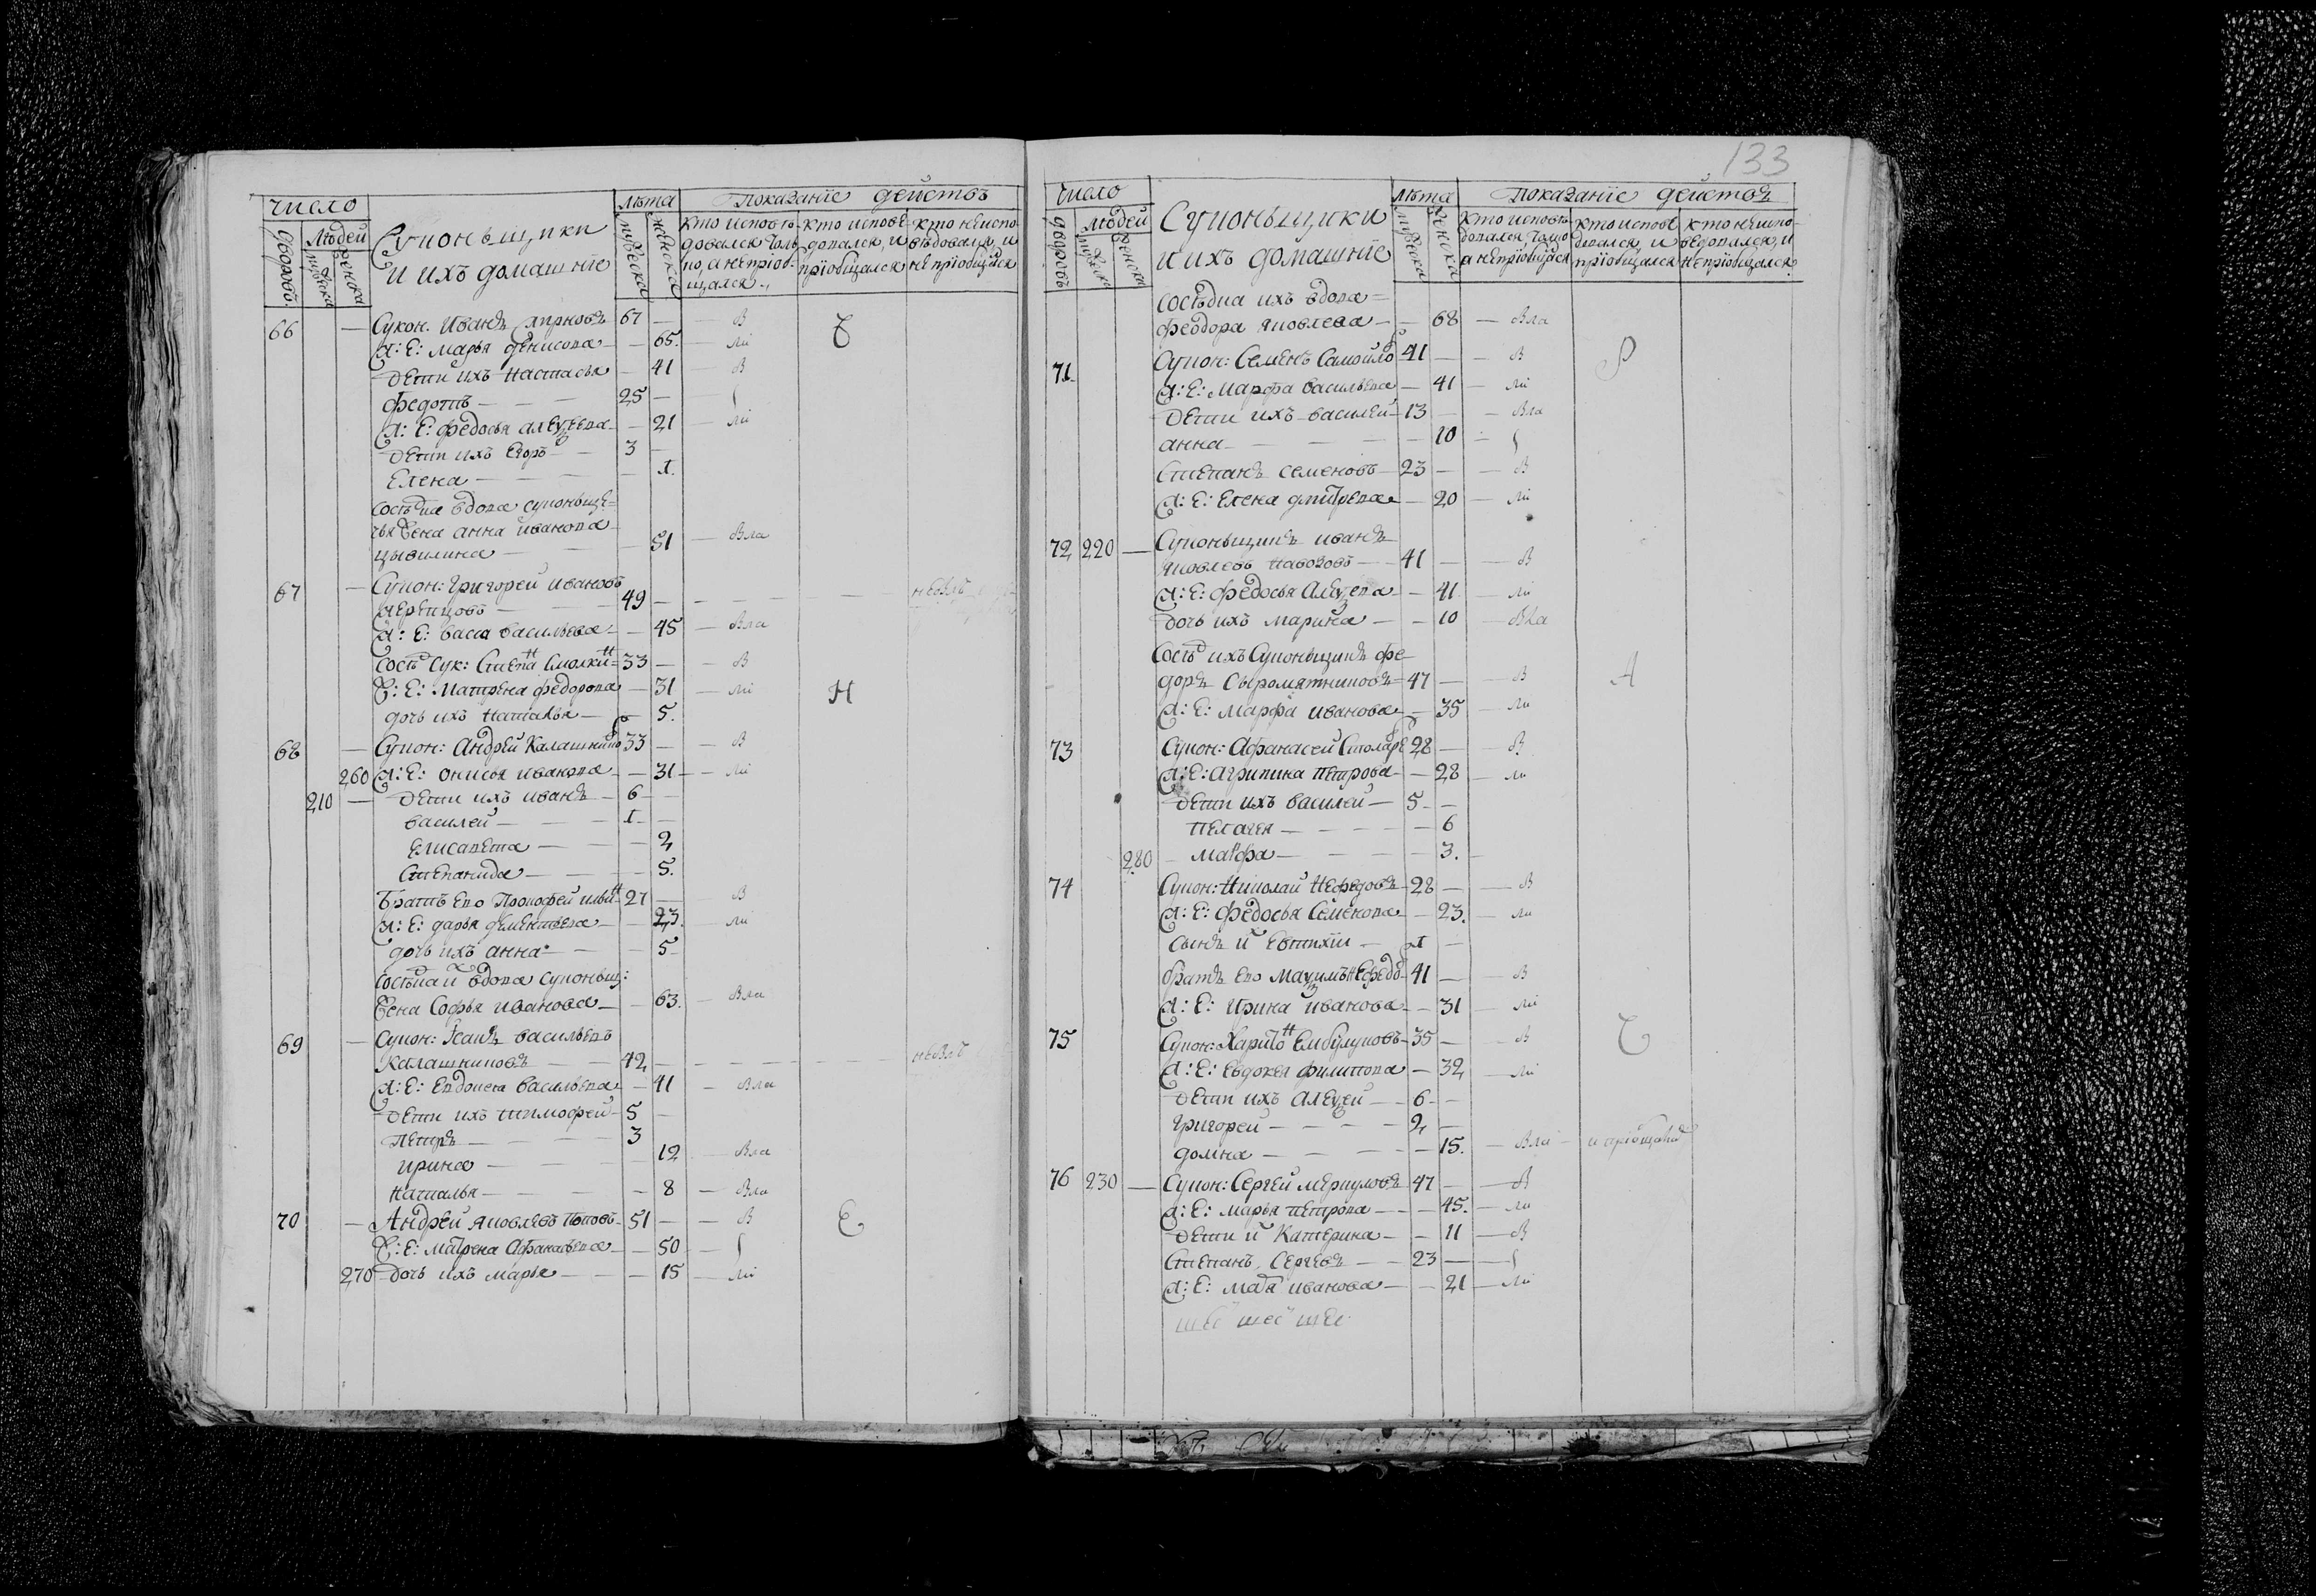 число
Людей
дворовъ
мужеска
женска
Суконьщики
и ихъ домашнїе
лѣта
мужеска
женска
показанїе действъ
кто исповѣ-
довался толь-
ко, а не прїоб-
щался
кто исповѣ-
довался, и
прїобщался
кто не испо-
вѣдовался, и
не прїобщался
66 — Сукон. Иванъ 67 — В
Ж: Е: Марья Денисова — 65. ли
дети ихъ Настасья — 41 — В
Федотъ — 25 —
Ж: Е: Федосья Алеѯеева — 21 — ли
дети ихъ Егоръ — 3 —
Елена — 1.
сосѣдка вдова суконьще-
чья жена Анна Иванова
Цывилина — 51 — Вла
67 — Сукон: Григорей Ивановъ
49 —
Ж: Е: Васа Васильева — 45 — Вла
сосѣд Сук: Степан Смолкин 33 — В
Ж: Е: Матрена Федорова — 31 — ли Н
дочь ихъ Наталья — 5.
68 — Сукон: Андрей Калашнико 33 — В
260 Ж: Е: Онисья Иванова — 31 — ли
210 — дети ихъ Иванъ — 6 —
Василей — 1 —
Елисавета — 2
Степанида — 5.
Братъ Его Прокофей Ильин 27 — В
Ж: Е: Дарья Дементьева — 23. ли
дочь ихъ Анна — 5
сосѣдка их вдова суконьщ:
жена Софья Иванова — 63. — Вла
69 — Сукон: Исаия Васильевъ
Калашниковъ — 42 —
Ж: Е: Евдокея Васильева — 41 — Вла
дети ихъ Тимофей — 5 —
Петръ — 3
Ирина — 12 — Вла
Наталья — 8 — Вла
70 — Андрей Яковлевъ Поповъ — 51 — В Е
Ж: Е: Матрена Афанасьева — 50
270 дочь ихъ Марья — 15 — ли
133
число
Людей
дворовъ
мужеска
женска
Суконьщики
и ихъ домашнїе
лѣта
мужеска
женска
показанїе действъ
кто исповѣ-
довался, только
а не прїобщался
кто исповѣ
довался, и
прїобщался
кто не испо-
вѣдовался, и
не прїобщался
сосѣдка ихъ вдова
Феодора Яковлева — 68 — Вла
71. Сукон: Семенъ Самойло 41 — В Р
Ж: Е: Марфа Васильева — 41 — ли
дети ихъ Василей — 13 — Вла
Анна — 10
Степанъ Семеновъ — 23 — В
Ж: Е: Елена Дмитрева — 20 — ли
72 220 — Суконьщикъ Иванъ
Яковлевъ — 41 — В
Ж: Е: Федосья Алеѯеева — 41 — ли
дочь ихъ Марина — 10 — Вла
сосѣд ихъ Суконьщикъ Фе-
доръ Сыромятниковъ — 47 — В А
Ж: Е: Марфа Иванова — 35 — ли
73 Сукон: Афанасей Столяре 28 — В
Ж: Е: Агрипина Петрова — 28 — ли
дети ихъ Василей — 5 —
Пелагея — 6
280 — Марфа — 3.
74 Сукон: Николай Нефедовъ — 28 — В
Ж: Е: Федосья Семенова — 23. — ли
сынъ их Евтихїи — 1 —
братъ Его Маѯимъ Нефедо 41 — В
Ж: Е: Ирина Иванова — 31 — ли
75 Сукон: Харитон Ембулуковъ — 35 — В
Ж: Е: Евдокея Филипова — 32 — ли
дети ихъ Алеѯей — 6 —
Григорей — 2 —
Домна — 15. — Вла
76 230 — Сукон: Сергей Меркуловъ 47 — В
Ж: Е: Марья Петрова — 45. — ли
дети их Катерина — 11 — В
Степанъ Сергеевъ — 23 —
Ж: Е: Марья Иванова — 21 — ли